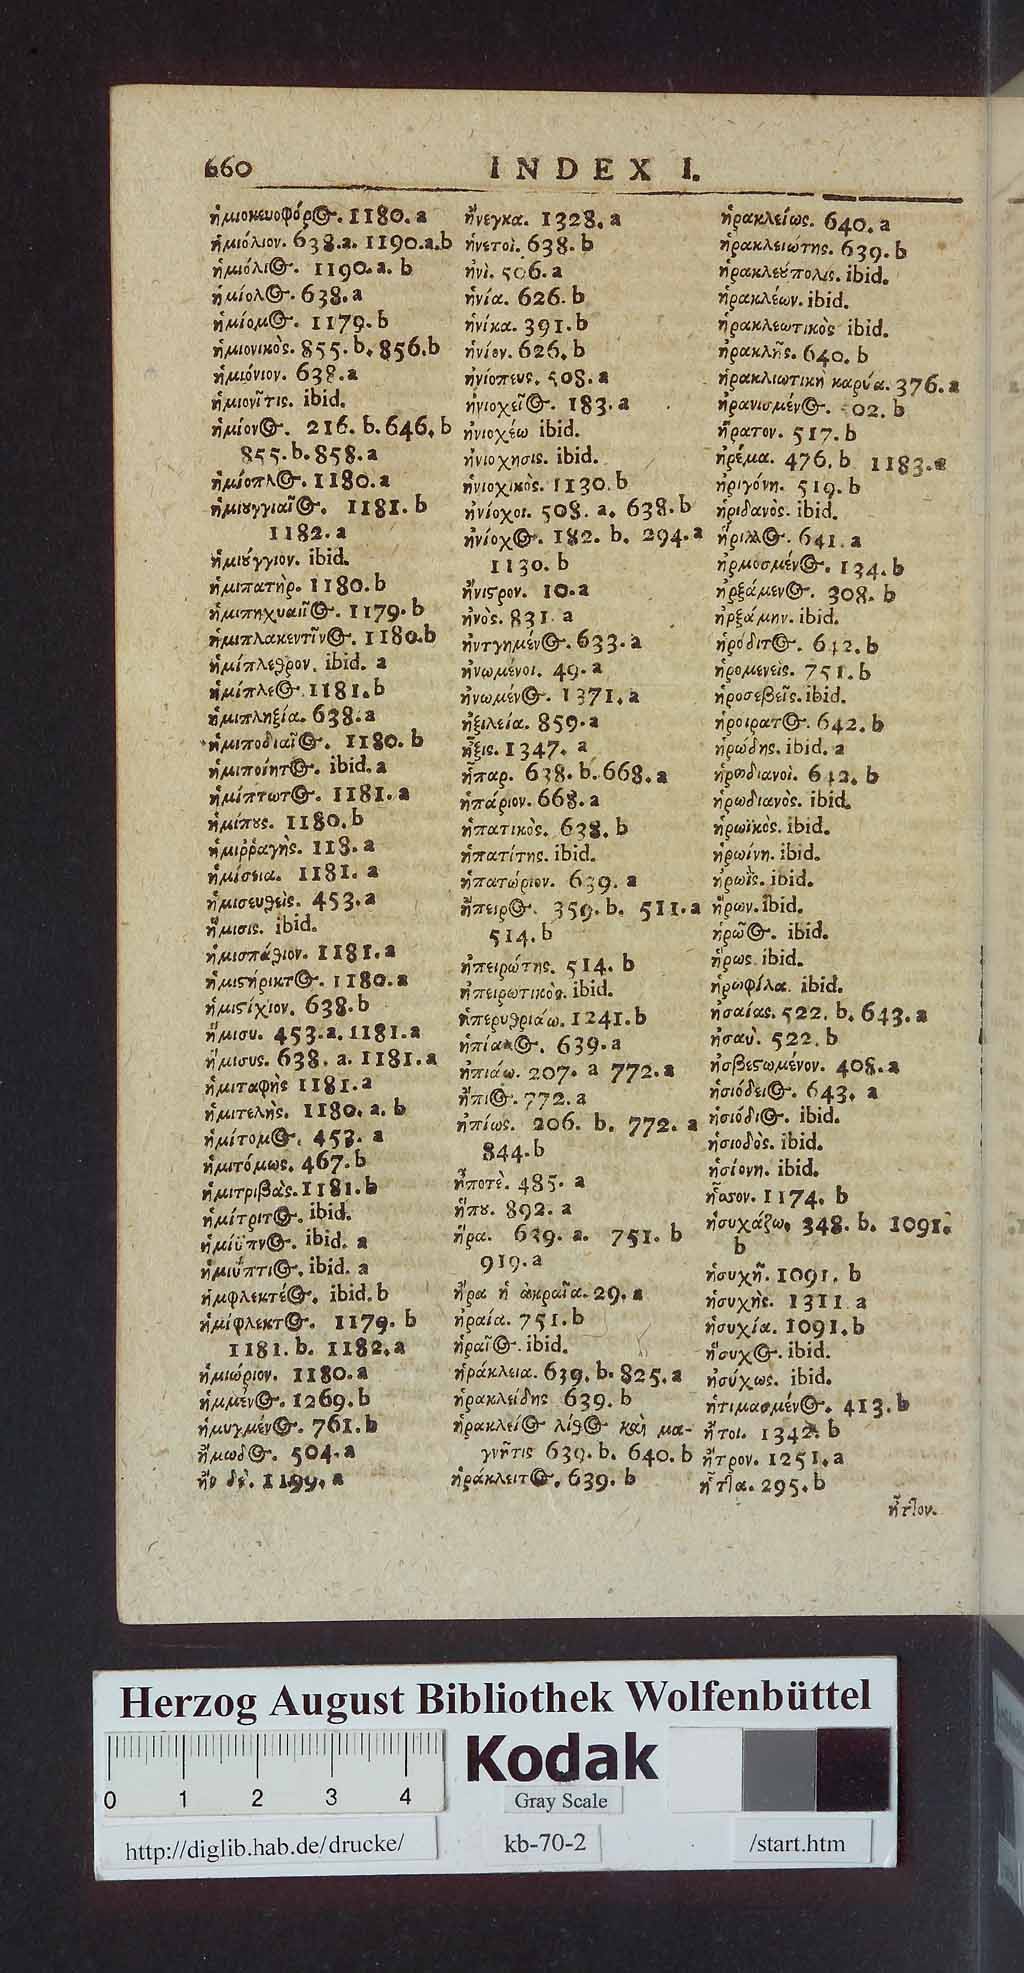 660 INDEX I.
ἡμιοκευοφόρος. 1180. a
ἡμιόλιον. 638. a. 1190. a. b
ἡμιόλιος. 1190. a. b
ἡμίολος. 638. a
ἡμίομος. 1179. b
ἡμιονικὸς. 855. b. 856. b
ἡμιόνιον. 638. a
ἡμιονῖτις. ibid.
ἡμίονος. 216. b. 646. b
855. b. 858. a
ἡμίοπλος. 1180. a
ἡμιουγγιαῖος. 1181. b
1182. a
ἡμιούγγιον. ibid.
ἡμιπατὴρ. 1180. b
ἡμιπηχυαῖος. 1179. b
ἡμιπλακεντῖνος. 1180. b
ἡμίπλεθρον. ibid. a
ἡμίπλεος. 1181. b
ἡμιπληξία. 638. a
ἡμιποδιαῖος. 1180. b
ἡμιποίητος. ibid. a
ἡμίπτωτος. 1181. a
ἡμίπους. 1180. b
ἡμιῤῥαγὴς. 118. a
ἡμίσεια. 1181. a
ἡμισευθεὶς. 453. a
ἥμισις. ibid.
ἡμισπάθιον. 1181. a
ἡμιστήρικτος. 1180. a
ἡμιστίχιον. 638. b
ἥμισυ. 453. a. 1181. a
ἥμισυς. 638. a. 1181. a
ἡμιταφὴς 1181. a
ἡμιτελὴς. 1180. a. b
ἡμίτομος. 453. a
ἡμιτόμως. 467. b
ἡμιτριβὰς. 1181. b
ἡμίτριτος. ibid.
ἡμίϋπνος. ibid. a
ἡμιύπτιος. ibid. a
ἡμφλεκτέος. ibid. b
ἡμίφλεκτος. 1179. b
1181. b. 1182. a
ἡμιώριον. 1180. a
ἡμμένος. 1269. b
ἡμυγμένος. 761. b
ἤμωδος. 504. a
ἢν δέ. 1199. a
ἤνεγκα. 1328. a
ἥνετοι. 638. b
ἠνὶ. 506. a
ἡνία. 626. b
ἡνίκα. 391. b
ἡνίον. 626. b
ἠνίοπευς. 508. a
ἡνιοχεῖος. 183. a
ἡνιοχέω ibid.
ἡνιοχησις. ibid.
ἡνιοχικὸς. 1130. b
ἡνίοχοι. 508. a. 638. b
ἡνίοχος. 182. b. 294. a
1130. b
ἤνιστρον. 10. a
ἠνὸς. 831. a
ἠντγημένος. 633. a
ἡνωμένοι. 49. a
ἡνωμένος. 1371. a
ἠξιλεία. 859. a
ἧξις. 1347. a
ἧπαρ. 638. b. 668. a
ἡπάριον. 668. a
ἡπατικὸς. 638. b
ἡπατίτης. ibid.
ἡπατώριον. 639. a
ἤπειρος. 359. b. 511. a
514. b
ἠπειρώτης. 514. b
ἠπειρωτικὸς. ibid.
ἠπερυθριάω. 1241. b
ἠπίαλος. 639. a
ἠπιάω. 207. a 772. a
ἤπιος. 772. a
ἠπίως. 206. b. 772. a
844. b
ἦποτὲ. 485. a
ἥπου. 892. a
ἥρα. 639. a. 751. b
919. a
ἥρα ἡ ἀκραῖα. 29. a
ἡραία. 751. b
ἡραῖος. ibid.
ἡράκλεια. 639. b. 825. a
ἡρακλείδης 639. b
ἡρακλείος λίθος καὶ μα-
γνῆτις 639. b. 640. b
ἡράκλειτος. 639. b
ἡρακλείως. 640. a
ἡρακλειώτης. 639. b
ἡρακλεύπολις. ibid.
ἡρακλέων. ibid.
ἡρακλεωτικὸς ibid.
ἡρακλῆς. 640. b
ἡρακλιωτικὴ καρύα. 376. a
ἠρανισμένος. 502. b
ἤρατον. 517. b
ἠρέμα. 476. b 1183. a
ἠριγόνη. 519. b
ἠριδανὸς. ibid.
ἥριλλος. 641. a
ἡρμοσμένος. 134. b
ἠρξάμενος. 308. b
ἠρξάμην. ibid.
ἡρόδιτος. 642. b
ἡρομενεὶς. 751. b
ἡροσεβεῖς. ibid.
ἡροιρατος. 642. b
ἡρώδης. ibid. a
ἡρωδιανοὶ. 642. b
ἡρωδιανὸς. ibid.
ἡρωϊκὸς. ibid.
ἡρωίνη. ibid.
ἡρωῒς. ibid.
ἥρων. ibid.
ἡρῶος. ibid.
ἥρως. ibid.
ἡρωφίλα. ibid.
ἡσαίας. 522. b. 643. a
ἠσαὺ. 522. b
ἠσβεστωμένον. 408. a
ἡσιόδειος. 643. a
ἡσιόδιος. ibid.
ἡσιοδὸς. ibid.
ἡσιόνη. ibid.
ἧσσον. 1174. b
ἡσυχάζω. 348. b. 1091.
b
ἡσυχῆ. 1091. b
ἡσυχὴς. 1311 a
ἡσυχία. 1091. b
ἥσυχος. ibid.
ἡσύχως. ibid.
ἠτιμασμένος. 413. b
ἤτοι. 1342. b
ἤτρον. 1251. a
ἧττα. 295. b
ἧττον.
Herzog August Bibliothek Wolfenbüttel
0 1 2 3 4
Kodak
Gray Scale
http://diglib.hab.de/drucke/ kb-70-2 /start.htm